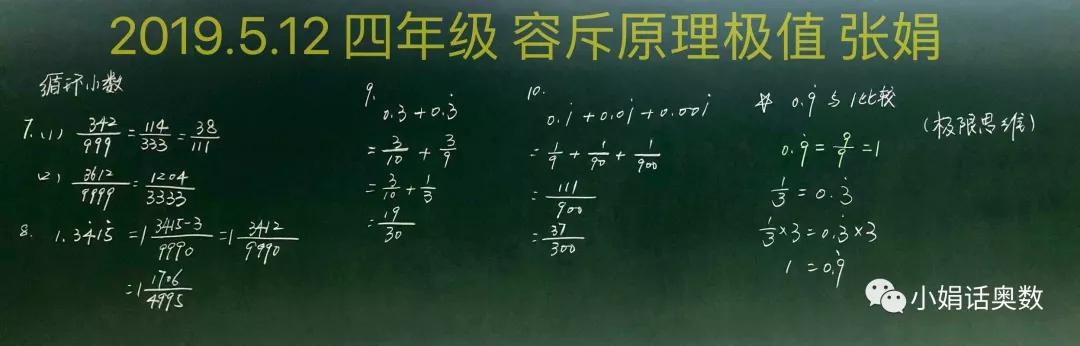 2019.5.12 四年级 容斥原理极值 张娟
循环小数
7. (1) 342/999 = 114/333 = 38/111
(2) 3612/9999 = 1204/3333
8. 1.34̇15̇ = 1 3415-3/9990 = 1 3412/9990
= 1 1706/4995
9.
0.3 + 0.3̇
= 3/10 + 3/9
= 3/10 + 1/3
= 19/30
10.
0.1̇ + 0.01̇ + 0.001̇
= 1/9 + 1/90 + 1/900
= 111/900
= 37/300
☆ 0.9̇ 与 1比较
(极限思维)
0.9̇ = 9/9 = 1
1/3 = 0.3̇
1/3 × 3 = 0.3̇ × 3
1 = 0.9̇
小娟话奥数